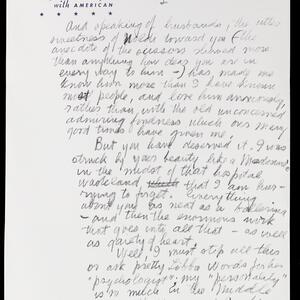 with AMERICAN
And speaking of husbands, the utter
sweetness of toward you (the
anecdote of the scissors showed more
than anything how dear you are in
every way to him -) has made me
know him more than I have known
most people, and love him anxiously,
rather than with the old unconcerned
admiring fondness which our many
good times have given me.
But you have deserved it. I was
struck by your beauty like a Madonna's
in the midst of that hospital
wasteland that I am hur-
rying to forget. Everything
about you as neat as a
- and then the enormous work
that goes into all that - as well
as gaiety of heart.
Well, I must stop all this
or ask pretty Words for her
"psychologist" my "personality"
is so much in the Middle